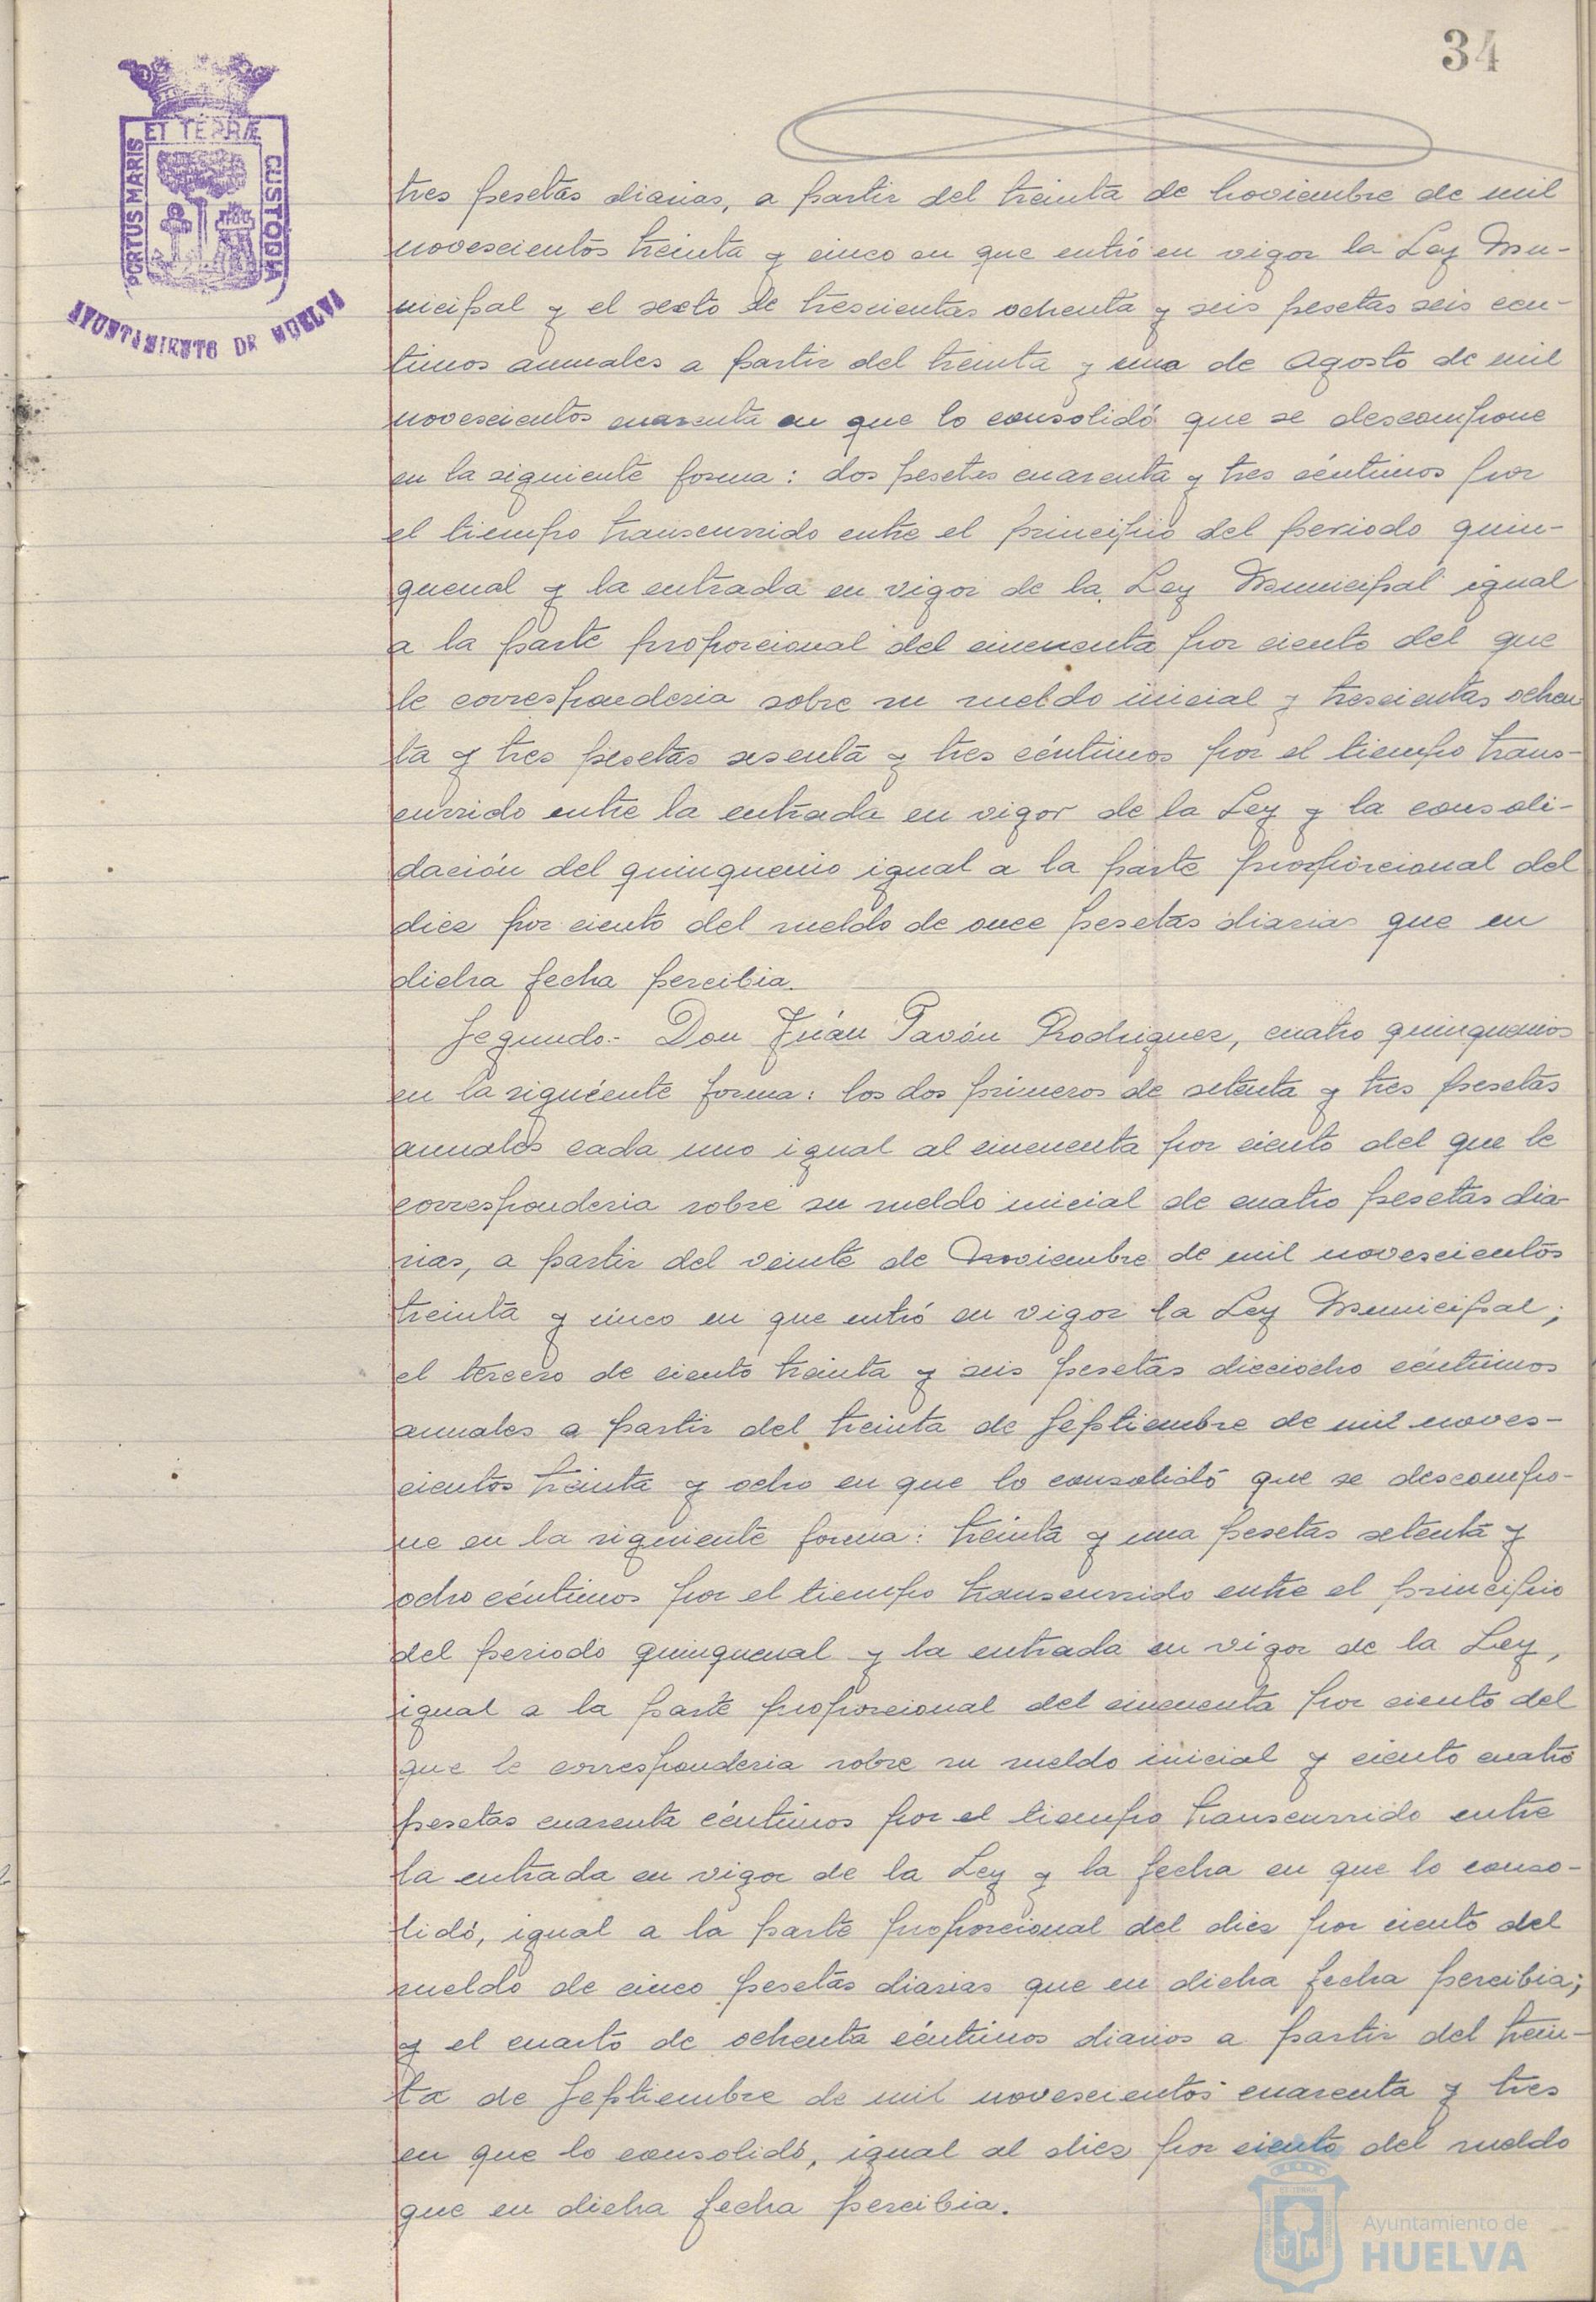 34
ET TERRÆ
PORTUS MARIS
CUSTODIA
AYUNTAMIENTO DE HUELVA
tres pesetas diarias, a partir del treinta de Noviembre de mil
novescientos treinta y cinco en que entró en vigor la Ley Mu-
nicipal y el sexto de trescientas ochenta y seis pesetas seis cen-
timos anuales a partir del treinta y uno de Agosto de mil
novescientos cuarenta en que lo consolidó que se descompone
en la siguiente forma: dos pesetas cuarenta y tres céntimos por
el tiempo transcurrido entre el principio del periodo quin-
quenal y la entrada en vigor de la Ley Municipal igual
a la parte proporcional del cincuenta por ciento del que
le corresponderia sobre su sueldo inicial y trescientas ochen
ta y tres pesetas sesenta y tres céntimos por el tiempo trans-
currido entre la entrada en vigor de la Ley y la consoli-
dación del quinquenio igual a la parte proporcional del
diez por ciento del sueldo de once pesetas diarias que en
dicha fecha percibia.
Segundo.- Don Juan Pavón Rodriguez, cuatro quinquenios
en la siguiente forma: los dos primeros de setenta y tres pesetas
anuales cada uno igual al cincuenta por ciento del que le
corresponderia sobre su sueldo inicial de cuatro pesetas dia
rias, a partir del veinte de Noviembre de mil novescientos
treinta y cinco en que entró en vigor la Ley Municipal;
el tercero de ciento treinta y seis pesetas dieciocho céntimos
anuales a partir del treinta de Septiembre de mil noves-
cientos treinta y ocho en que lo consolidó que se descompo-
ne en la siguiente forma: treinta y una pesetas setenta y
ocho céntimos por el tiempo transcurrido entre el principio
del periodo quinquenal y la entrada en vigor de la Ley,
igual a la parte proporcional del cincuenta por ciento del
que le corresponderia sobre su sueldo inicial y ciento cuatro
pesetas cuarenta céntimos por el tiempo transcurrido entre
la entrada en vigor de la Ley y la fecha en que lo conso-
lidó, igual a la parte proporcional del diez por ciento del
sueldo de cinco pesetas diarias que en dicha fecha percibia;
y el cuarto de ochenta céntimos diarios a partir del trein-
ta de Septiembre de mil novescientos cuarenta y tres
en que lo consolidó, igual al diez por ciento del sueldo
que en dicha fecha percibia.
Ayuntamiento de
HUELVA